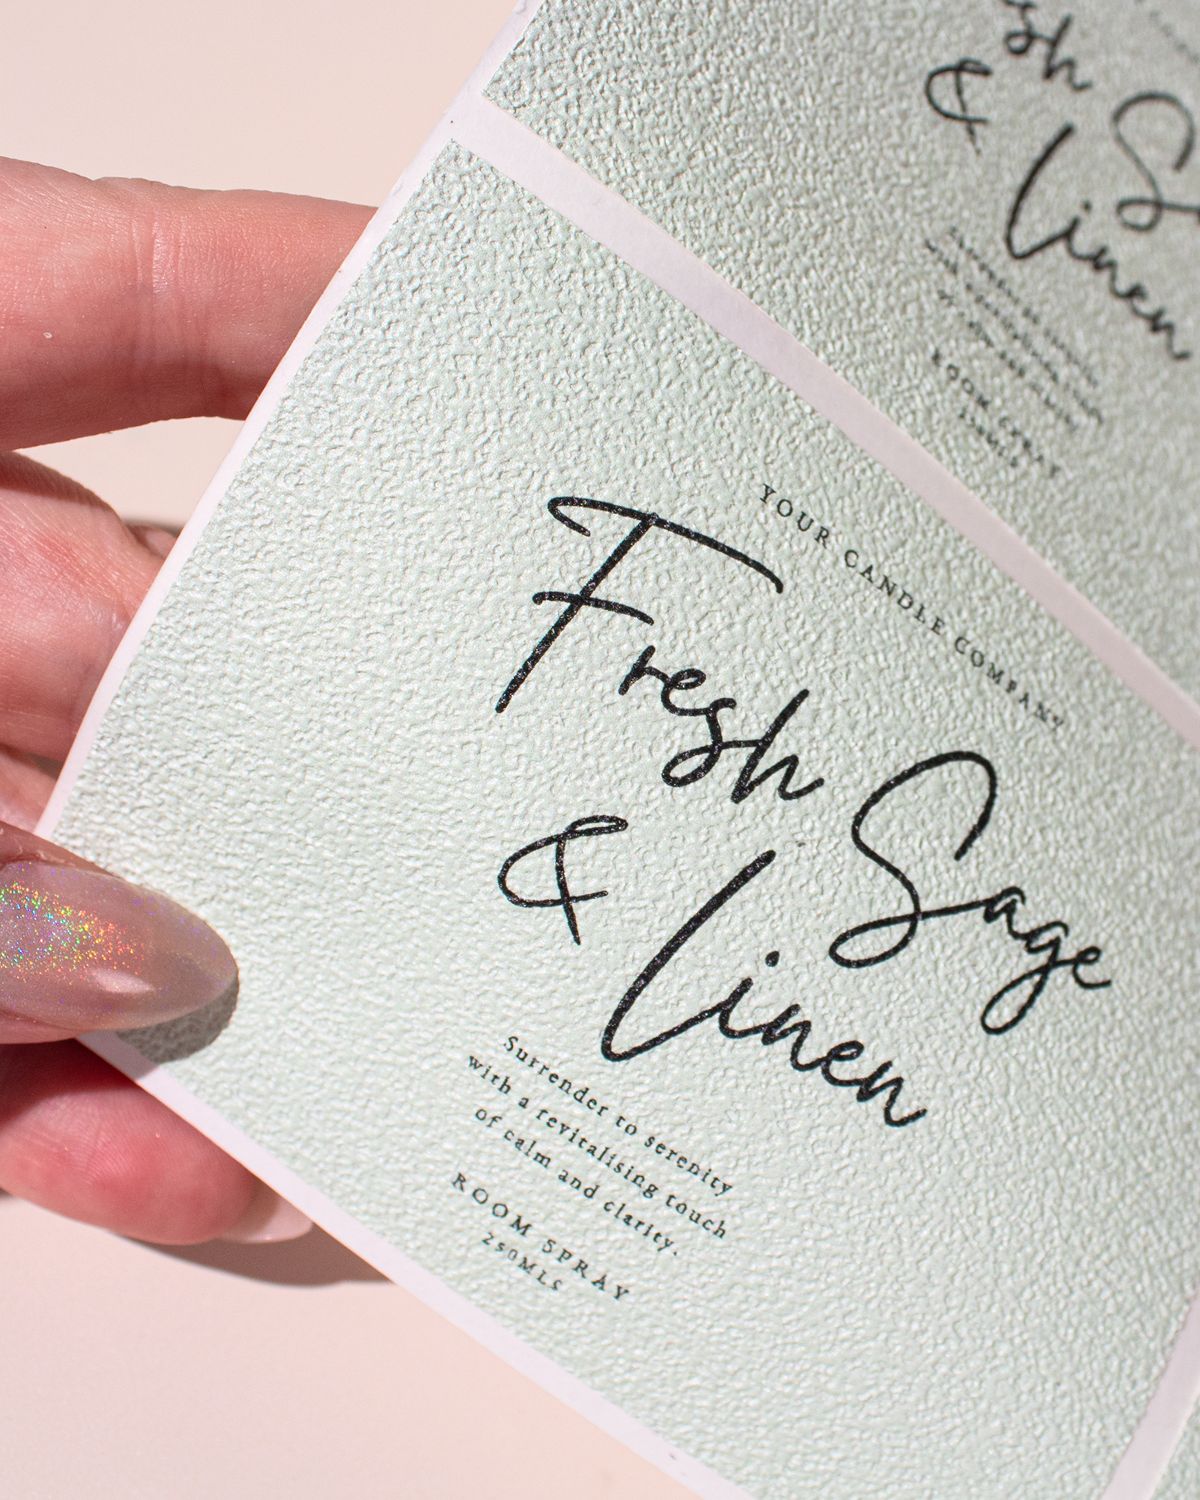 YOUR CANDLE COMPANY
Fresh Sage
& Linen
Surrender to serenity
with a revitalising touch
of calm and clarity.
ROOM SPRAY
250MLS
sh S
& Linen
ROOM SPRAY
250MLS